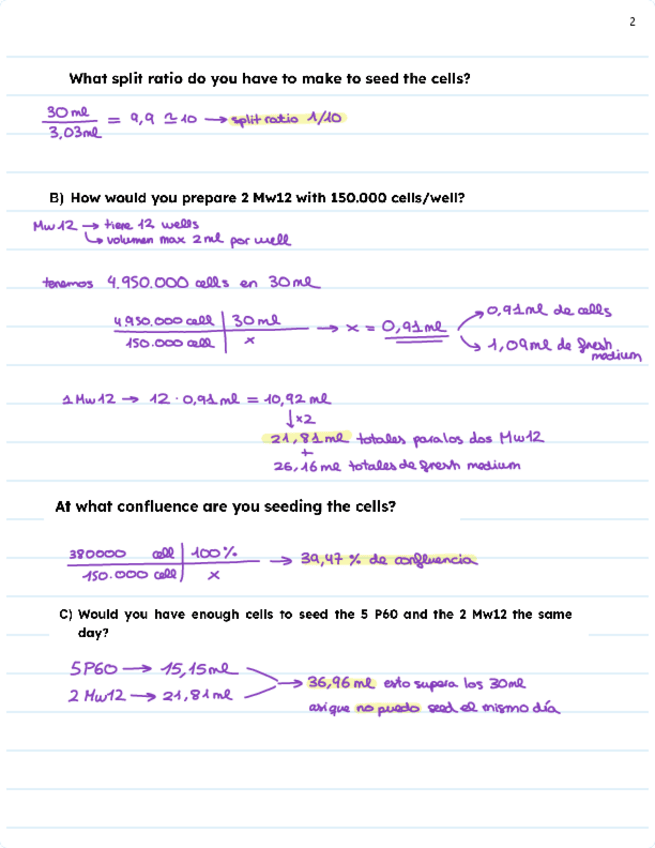 2
What split ratio do you have to make to seed the cells?
30 ml / 3,03 ml = 9,9 ≃ 10 → split ratio 1/10
B) How would you prepare 2 Mw12 with 150.000 cells/well?
Mw12 → tiene 12 wells
↳ volumen max 2 ml por well
tenemos 4.950.000 cells en 30 ml
4.950.000 cell | 30 ml
150.000 cell | x
→ x = 0,91 ml
0,91 ml de cells
1,09 ml de fresh medium
1 Mw12 → 12 · 0,91 ml = 10,92 ml
↓ x2
21,81 ml totales para los dos Mw12
+
26,16 ml totales de fresh medium
At what confluence are you seeding the cells?
380000 cell | 100%
150.000 cell | x
→ 39,47 % de confluencia
C) Would you have enough cells to seed the 5 P60 and the 2 Mw12 the same
day?
5P60 → 15,15 ml
2 Mw12 → 21,81 ml
→ 36,96 ml esto supera los 30 ml
así que no puedo seed el mismo día